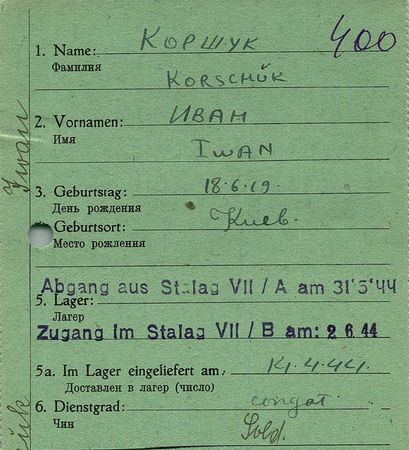 400
1. Name: Коршук
Фамилия
Korschuk
2. Vornamen: Иван
Имя
Iwan
3. Geburtstag: 18.6.19.
День рождения
Geburtsort: Киев.
Место рожления
Abgang aus Stalag VII / A am 31'5'44
5. Lager:
Лагерь
Zugang im Stalag VII / B am: 2 6. 44
5a. Im Lager eingeliefert am: 14.4.44.
Доставлен в лагерь (число)
6. Dienstgrad: солдат.
Чин
Sold.
Iwan